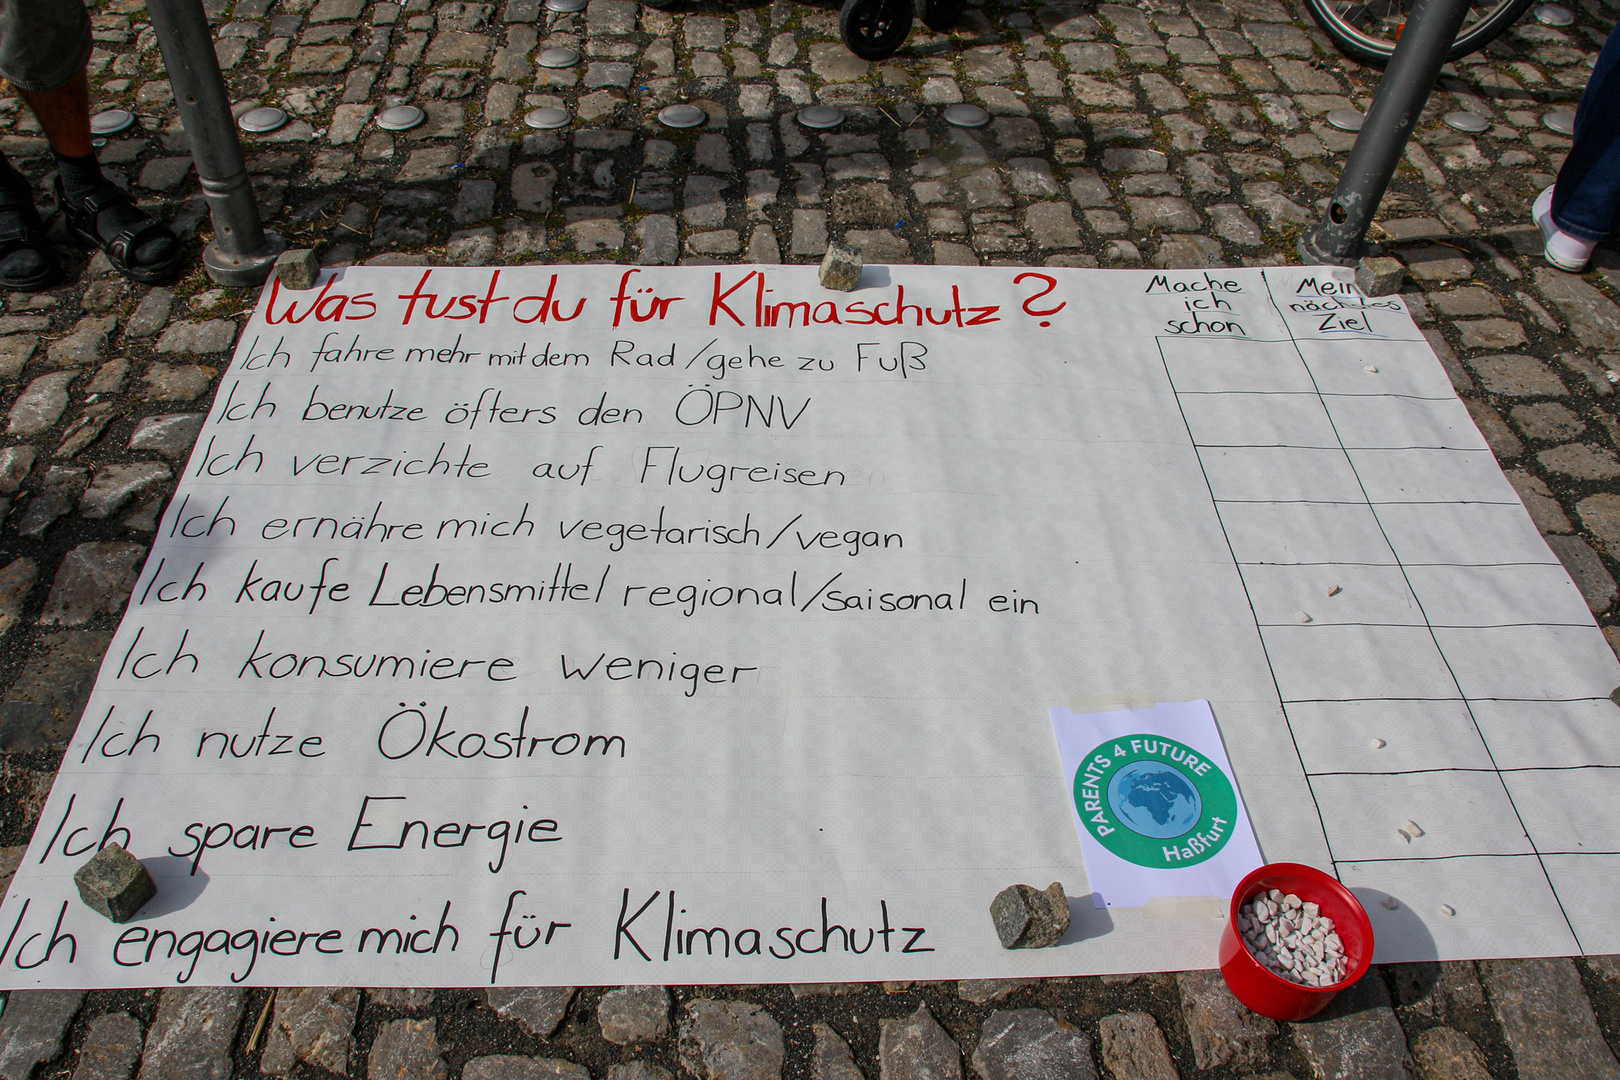 Was tust du für Klimaschutz?
Mache
ich
schon
Mein
nächstes
Ziel
Ich fahre mehr mit dem Rad/gehe zu Fuß
Ich benutze öfters den ÖPNV
Ich verzichte auf Flugreisen
Ich ernähre mich vegetarisch/vegan
Ich kaufe Lebensmittel regional/saisonal ein
Ich konsumiere weniger
Ich nutze Ökostrom
Ich spare Energie
Ich engagiere mich für Klimaschutz
PARENTS 4 FUTURE
Haßfurt